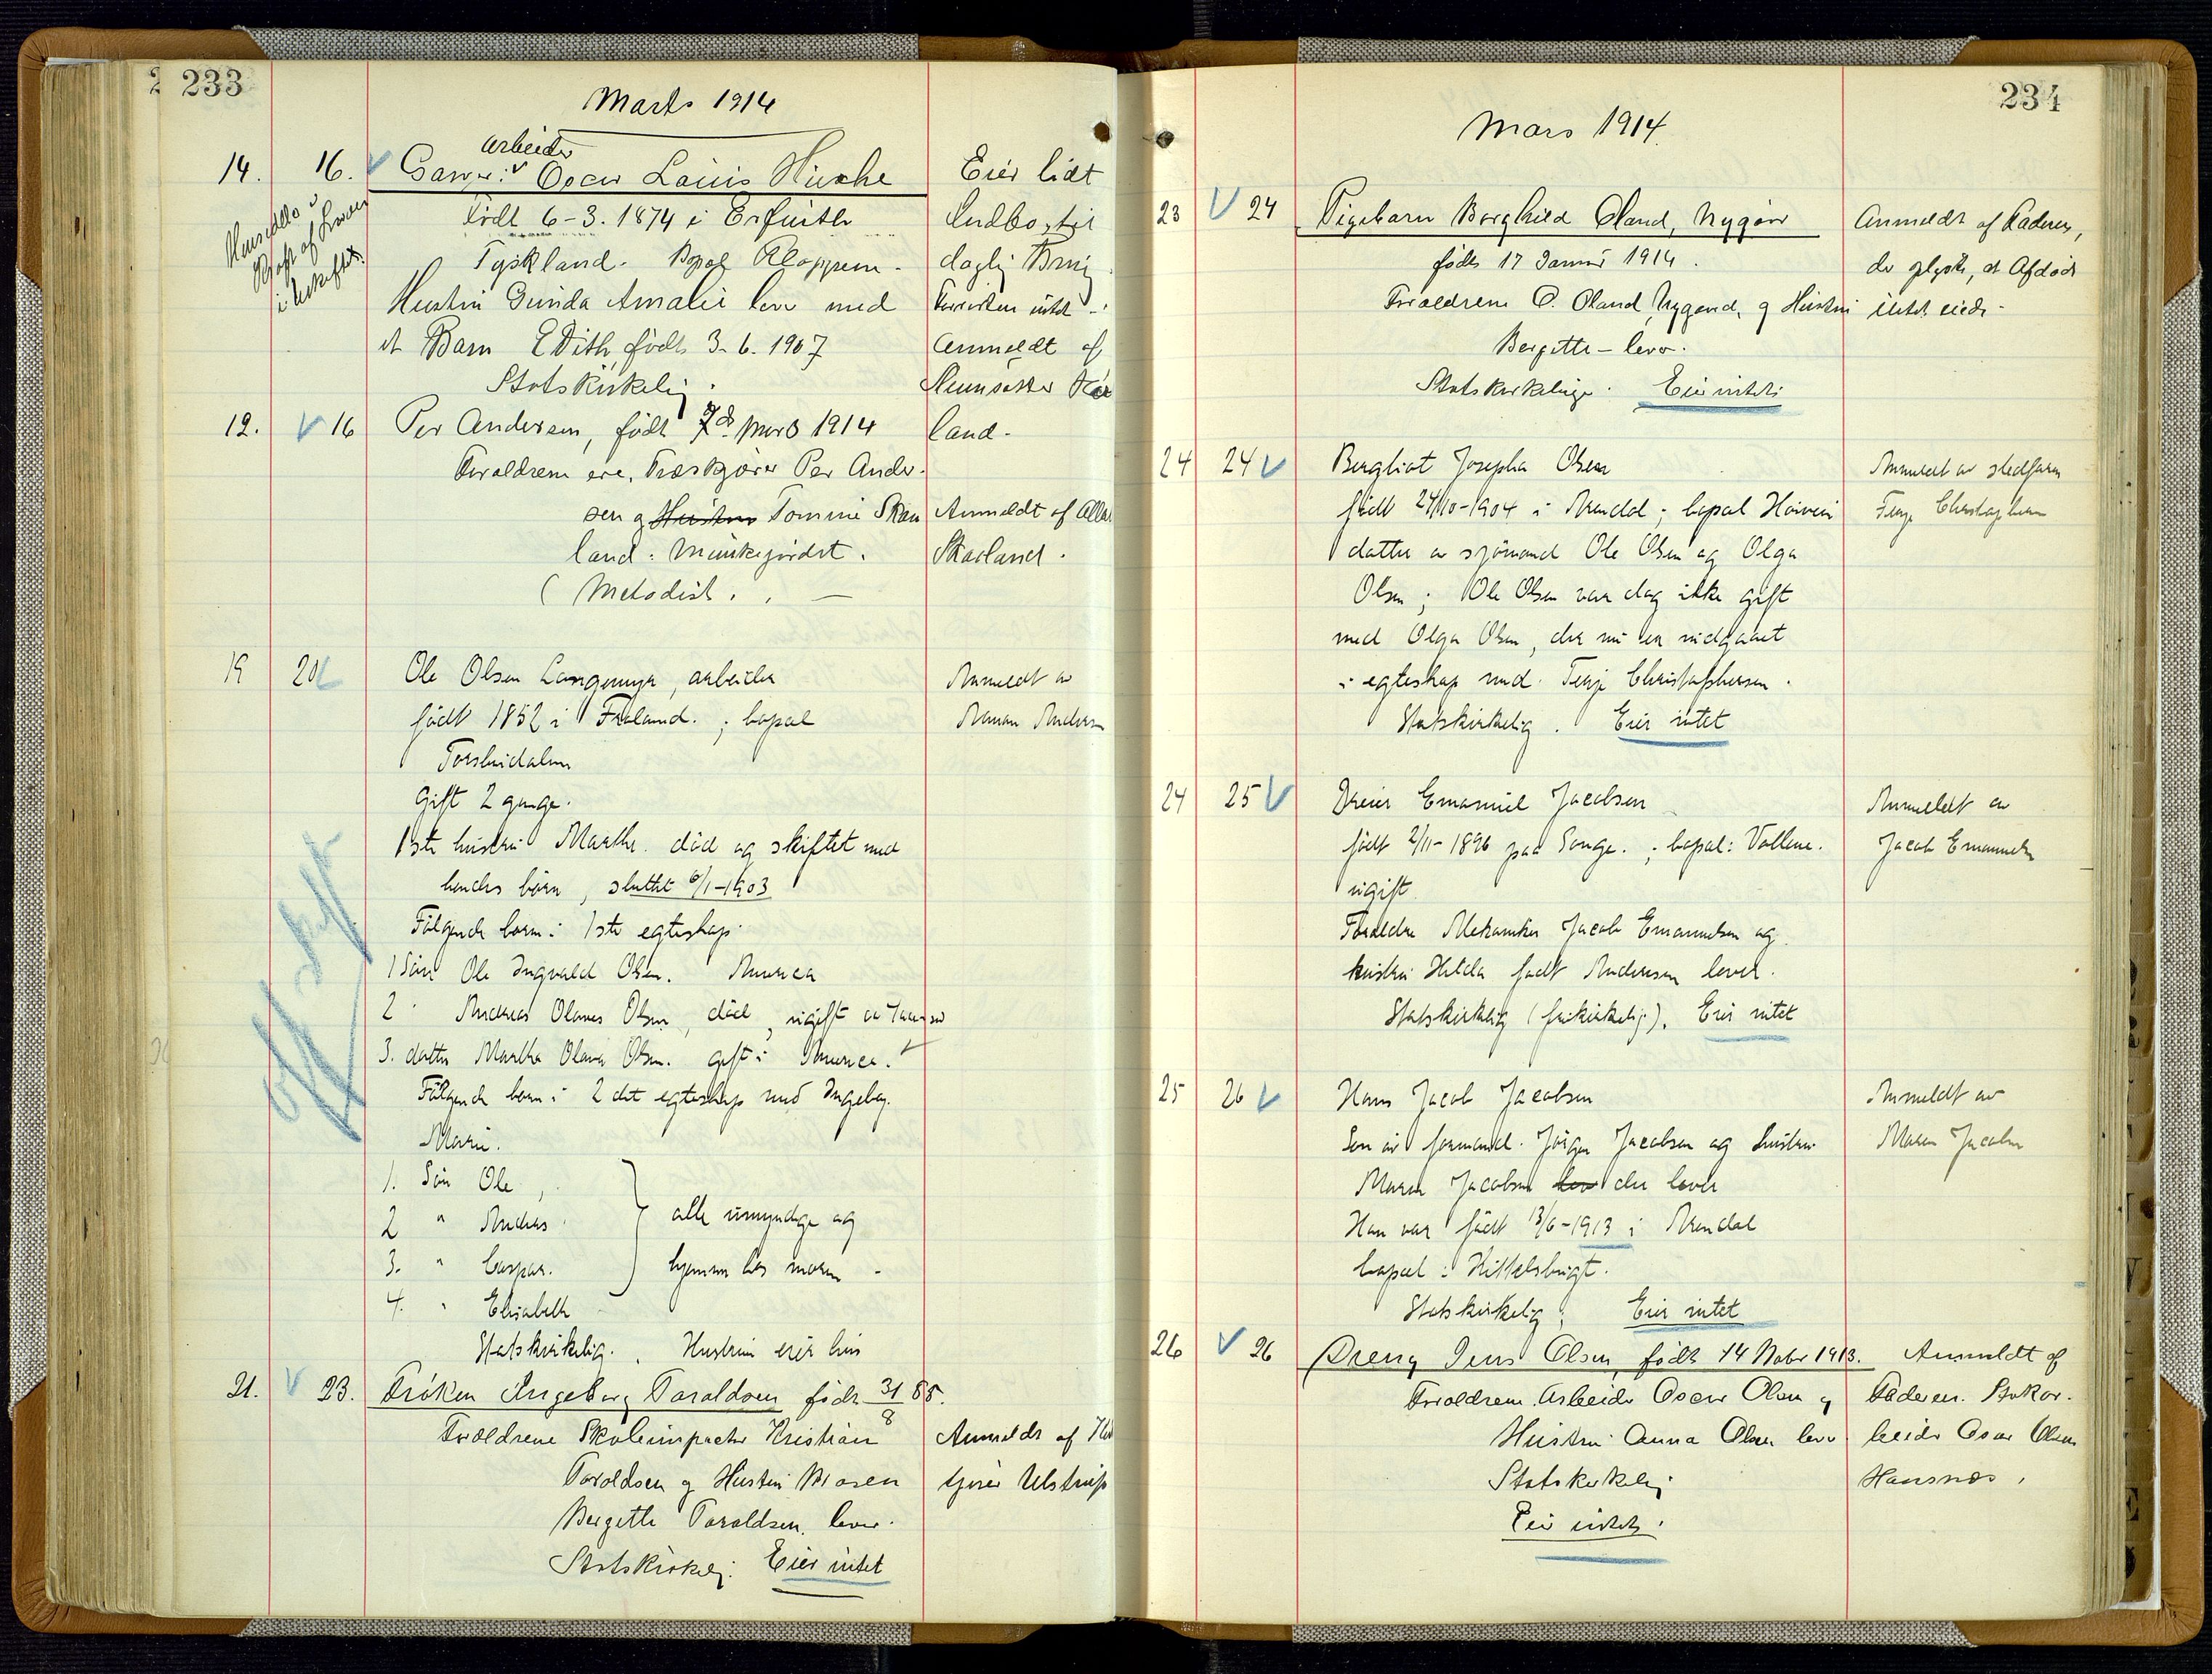 233
Marts 1914
arbeider
14. 16. Oscar Louis
Eier lidt
Født 6-3. 1874 i
Indbo, til
Tyskland. Bopæl
daglig Brug
Hustru Gunda Amalie lever med
et Barn Edith født 3-6. 1907
Anmeldt af
Statskirkelig.
12. 16 Per Andersen, født 7de Mars 1914
land.
Forældrene ere, Træskjærer Per Ander-
sen og Hustru Tomine Skau
Anmeldt af
land: Munkegjordet.
Skaaland.
(Metodist.
19 20 Ole Olsen Langemyr, arbeider
Anmeldt av
født 1852 i Froland. ; bopæl
Torsbudalen
Gift 2 gange.
1ste hustru Marthe. død og skiftet med
hendes børn, sluttet 6/1-1903
Følgende børn i 1ste egteskap.
1 Søn Ole Ingvald Olsen. America
2 " Andreas Olaves Olsen, død, ugift
3. datter Martha Olava Olsen. gift i America.
Følgende børn i 2det egteskap med Ingeborg
Marie.
1. Søn Ole,
2 " Andreas alle umyndige og
3. " Caspar. hjemme hos moren -
4. " Elisabeth
Statskirkelig. Hustrun eier hus
21. 23. Frøken Ingeborg Taraldsen født 31/8 88.
Forældrene Skoleinspektør Kristian
Anmeldt af
Taraldsen og Hustru Maren
Ulstrup
Bergette Taraldsen. lever.
Statskirkelig. Eier intet
234
Mars 1914.
23 24 Pigebarn Borghild Oland, Nygaar
Anmeldt af Faderen,
født 17 Januar 1914.
der oplyste, at Afdøde
Forældrene O. Oland, Nygaard, og Hustru
intet eiede.
Bergette - lever.
Statskirkelige. Eier intet
24 24 Bergliot Josepha Olsen
Anmeldt av stedfaren
født 24/10-1904 i Arendal; bopæl
Terje Christophersen
datter av sjømand Ole Olsen og Olga
Olsen; Ole Olsen var dog ikke gift
med Olga Olsen, der nu er indgaaet
i egteskap med Terje Christophersen.
Statskirkelig. Eier intet
24 25 Dreier Emanuel Jacobsen
Anmeldt av
født 2/11-1896 paa Songe. ; bopæl: Vollene.
Jacob Emanuelsen
ugift.
Forældre Mekaniker Jacob Emanuelsen og
hustru Hilda født Andersen lever.
Statskirkelig (frikirkelig). Eier intet
25 26 Hans Jacob Jacobsen
Anmeldt av
Søn av formand Jørgen Jacobsen og hustru
Maren Jacobsen
Maren Jacobsen lev der lever
Han var født 13/6-1913 i Arendal
bopæl: Kittelsbugt.
Statskirkelig; Eier intet
26 26 Dreng Jens Olsen, født 14 Nober 1913.
Anmeldt af
Forældrene Arbeider Oscar Olsen og
Faderen.
Hustru Anna Olsen lever
beider Oscar Olsen
Statskirkelig
Eier intet.